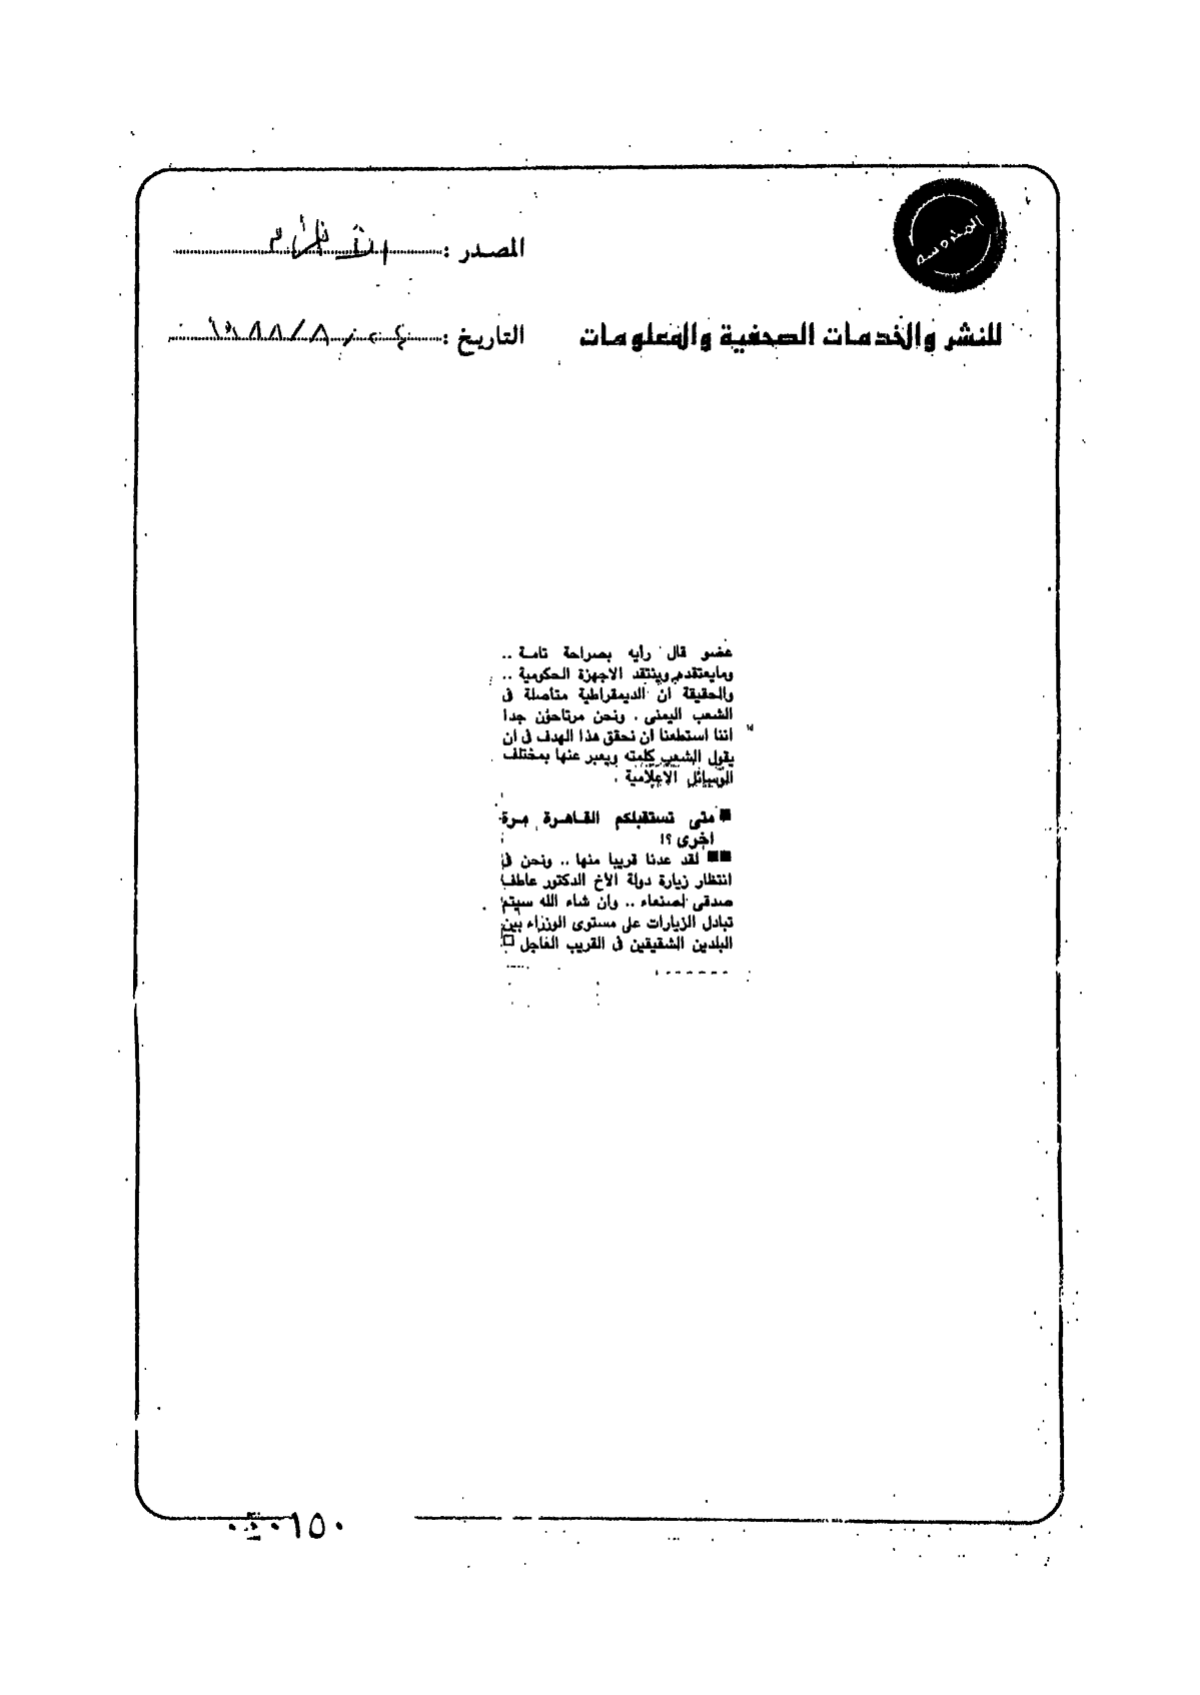 المصدر :
للنشر والخدمات الصحفية والمعلومات
التاريخ : ١٩٨٨/٨/
عضو قال رأيه بصراحة تامة ..
ومايعتقده وينتقد الاجهزة الحكومية ..
والحقيقة ان الديمقراطية متأصلة فى
الشعب اليمنى . ونحن مرتاحون جدا
اننا استطعنا ان نحقق هذا الهدف فى ان
يقول الشعب كلمته ويعبر عنها بمختلف
الوسائل الاعلامية .
■ متى تستقبلكم القاهرة مرة
اخرى ؟!
■■ لقد عدنا قريبا منها .. ونحن فى
انتظار زيارة دولة الاخ الدكتور عاطف
صدقى لصنعاء .. وان شاء الله سيتم
تبادل الزيارات على مستوى الوزراء بين
البلدين الشقيقين فى القريب العاجل □